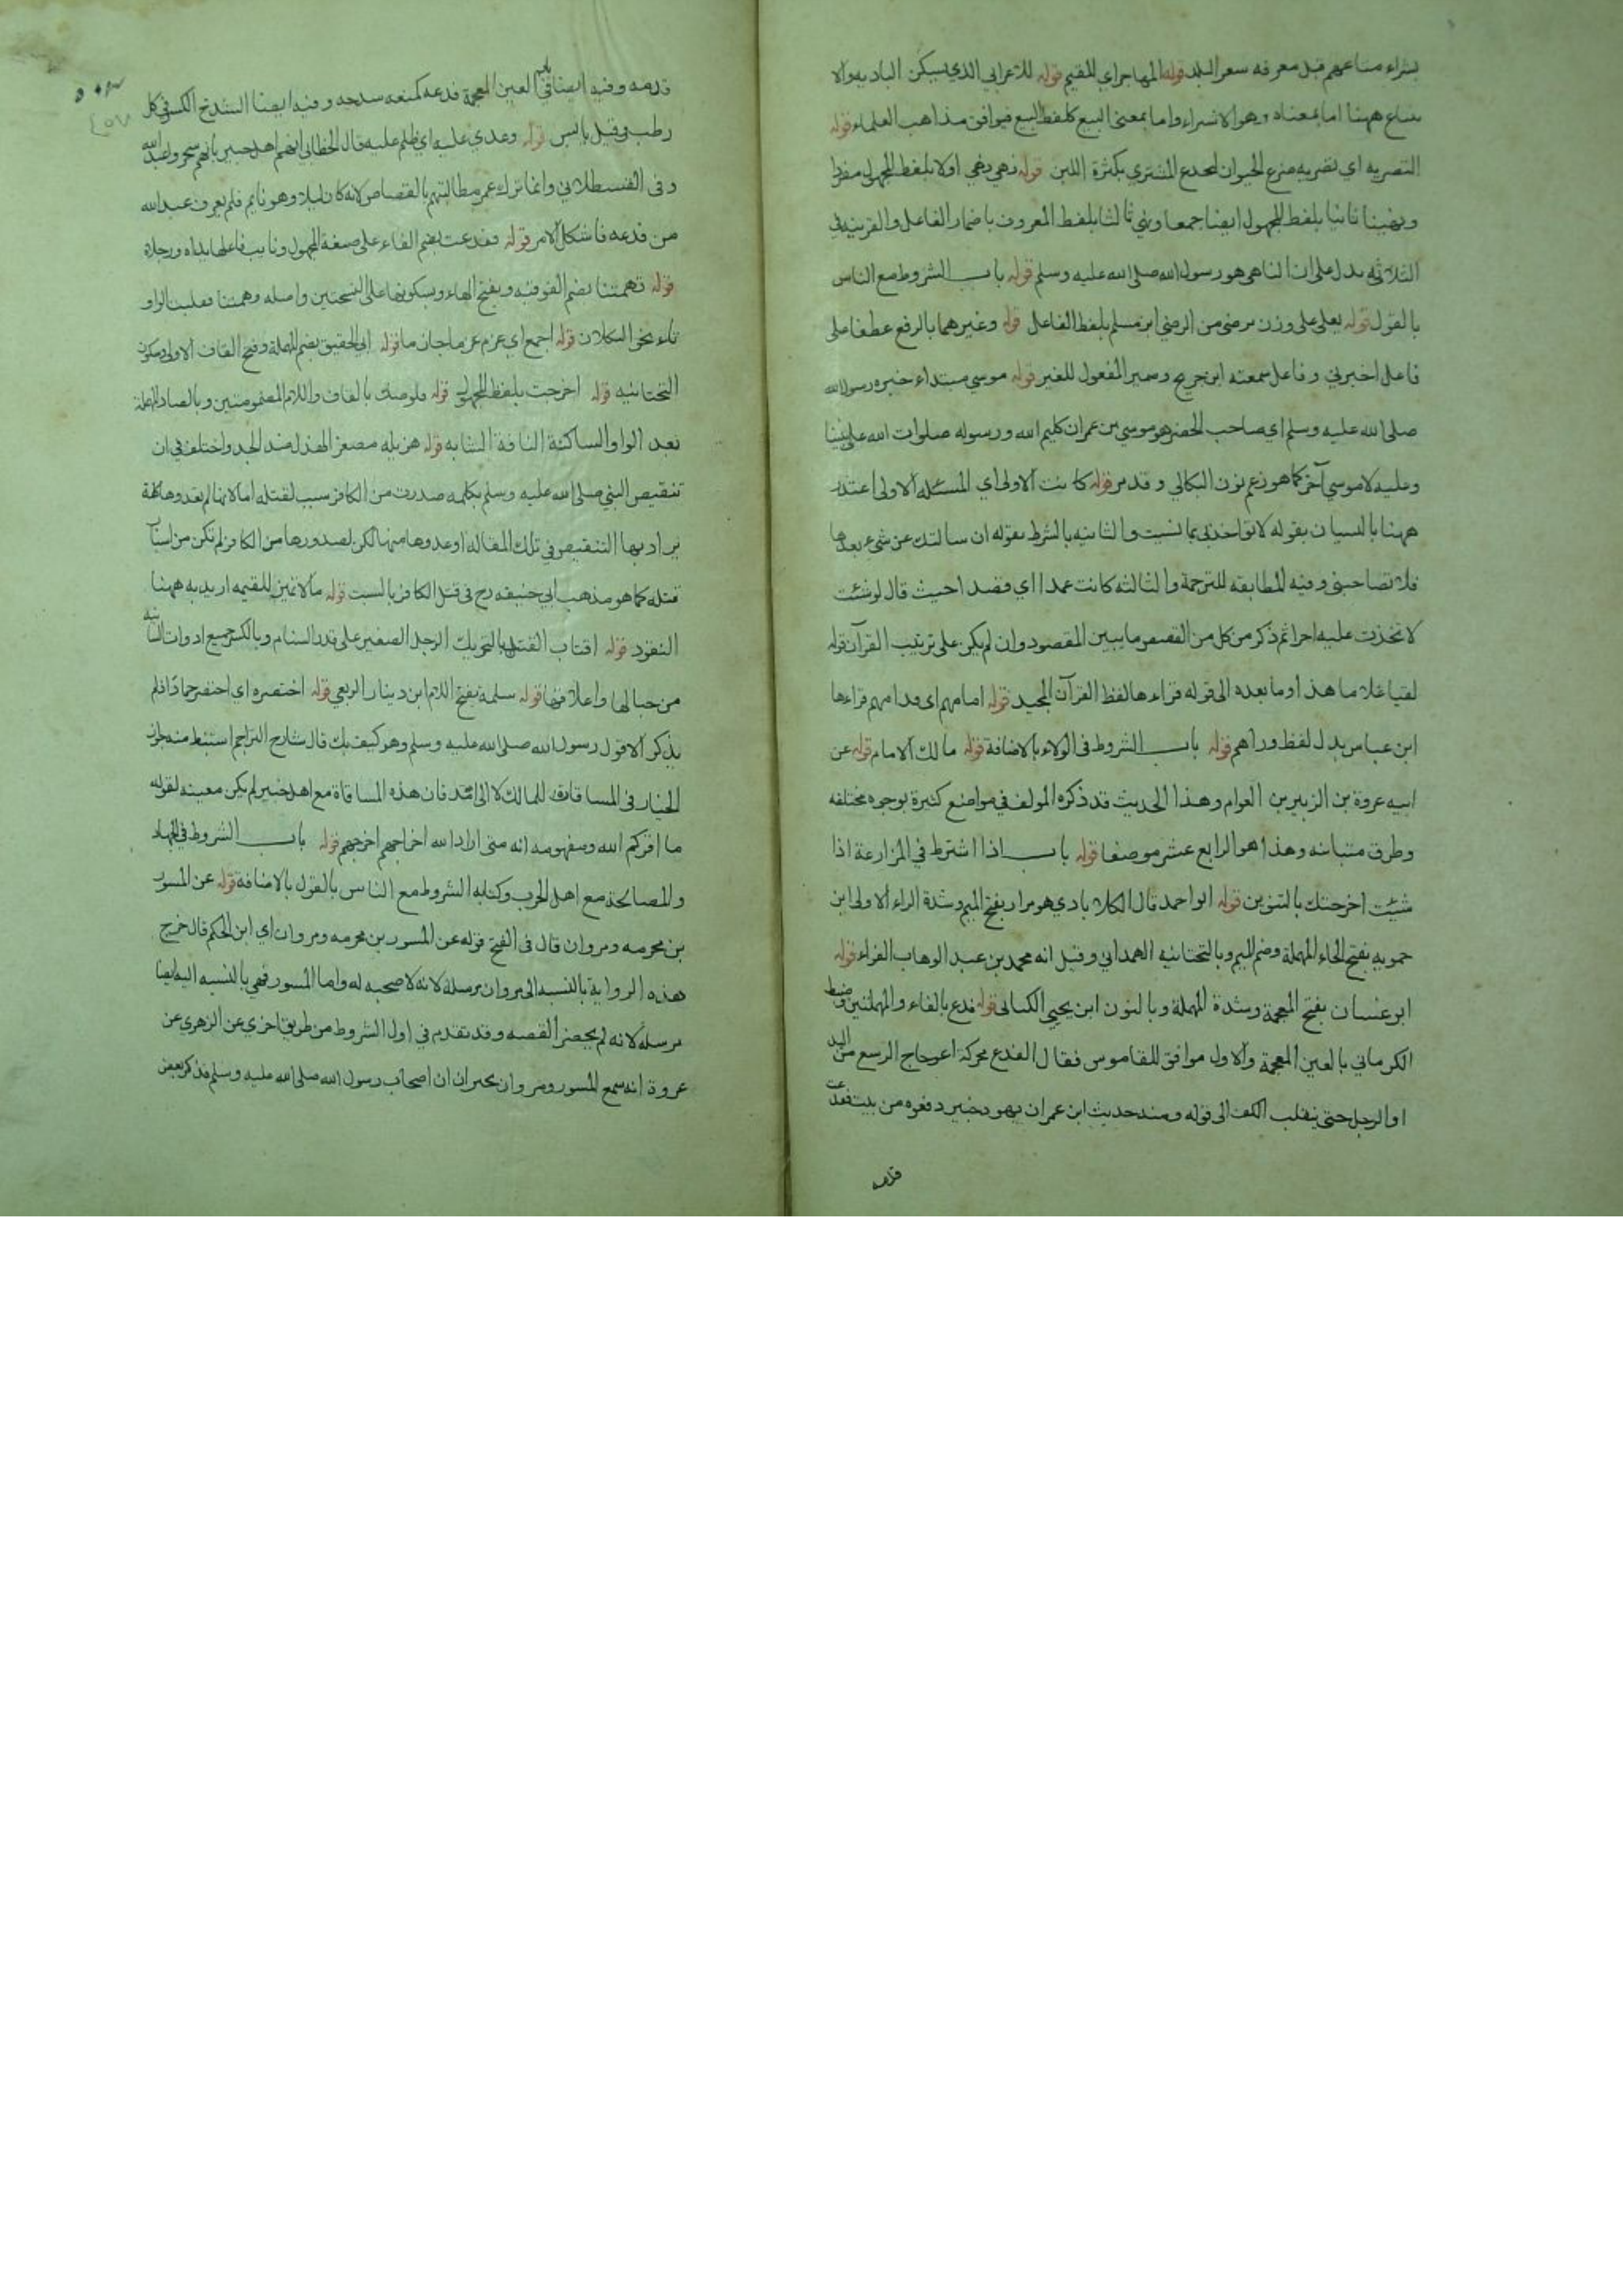 بشراء متاعهم قبل معرفه سعر البلد قوله المهاجر اي للمقيم قوله للاعرابي الذي يسكن الباديه والا
بتياع ههنا اما بمعناه وهو الاشتراء واما بمعنى البيع كلفظ البيع فيوافق مذاهب العلماء قوله
التصريه اي تصريه ضرع الحيوان لخدع المشتري بكثرة اللبن قوله نهي اولا بلفظ المجهول مفردا
ونهينا ثانيا بلفظ المجهول ايضا جمعا ونهي ثالثا بلفظ المعروف باضمار الفاعل والقرينه في
الثلاثه يدل على ان الناهي هو رسول الله صلى الله عليه وسلم قوله باب الشروط مع الناس
بالقول قوله يعلى على وزن يرضى من الرضي ابن مسلم بلفظ الفاعل قوله وغيرهما بالرفع عطفا على
فاعل اخبرني وفاعل سمعته ابن جريج وضمير المفعول للغير قوله موسي مبتداء خبره رسول الله
صلى الله عليه وسلم اي صاحب الخضر هو موسي بن عمران كليم الله ورسوله صلوات الله على نبينا
وعليه لا موسي آخر كما هو زعم نوف البكالي وقد مر قوله كانت الاولى اي المسئله الاولى اعتذر
ههنا بالنسيان بقوله لا تواخذني بما نسيت والثانيه بالشرط بقوله ان سالتك عن شيء بعدها
فلا تصاحبني وفيه المطابقه للترجمة والثالثه كانت عمدا اي قصدا حيث قال لو شئت
لاتخذت عليه اجرا ثم ذكر من كل من القصص ما يبين المقصود وان لم يكن على ترتيب القرآن قوله
لقيا غلاما هذا وما بعده الى قوله قراءها لفظ القرآن المجيد قوله امامهم اي قدامهم قراءها
ابن عباس بدل لفظ وراهم قوله باب الشروط في الولاء بالاضافة قوله مالك الامام قوله عن
ابيه عروة بن الزبير بن العوام وهذا الحديث قد ذكره المولف في مواضع كثيرة بوجوه مختلفه
وطرق متباينه وهذا هو الرابع عشر موضعا قوله باب اذا اشترط في المزارعة اذا
شئيت اخرجتك بالتنوين قوله ابو احمد قال الكلابادي هو مرار بفتح الميم وشدة الراء الاولى ابن
حمويه بفتح الحاء المهملة وضم الميم وبالتحتانيه الهمداني وقيل انه محمد بن عبد الوهاب الفراء قوله
ابو غسان بفتح المعجمة وشدة المهملة وبالنون ابن يحيى الكناني قوله فدع بالفاء والمهملتين وضبط
الكرماني بالعين المعجمة والاول موافق للقاموس فقال الفدع محركة اعوجاج الرسغ من اليد
او الرجل حتى ينقلب الكف الى قوله ومنه حديث ابن عمر ان يهود خيبر دفعوه من بيت ففدعت
قدمه
قدمه وفيه ايضا في باب العين المعجمة فدغه كمنعه شدخه وفيه ايضا الشدخ الكسر في كل
رطب وقيل يابس قوله وعدي عليه اي ظلم عليه قال الخطابي اتهم اهل خيبر بانهم سحروا عبد الله
وفي القسطلاني وانما ترك عمر مطالبتهم بالقصاص لانه كان ليلا وهو نايم فلم يعرف عبد الله
من فدعه فاشكل الامر قوله ففدعت بضم الفاء على صيغة المجهول ونايب فاعلها يداه ورجلاه
قوله تهمتنا بضم الفوقيه وبفتح الهاء وبسكونها على النسختين واصله وهمتنا فقلبت الواو
تاء نحو التكلان قوله اجمع اي عزم عمر ما جاء قوله ابي الحقيق بضم المهملة وفتح القاف الاولى وسكون
التحتانيه قوله اخرجت بلفظ المجهول قوله قلوصك بالقاف واللام المضمومتين وبالصاد المهملة
بعد الواو الساكنة الناقة الشابه قوله هزيله مصغر الهزل ضد الجد واختلف في ان
تنقيص النبي صلى الله عليه وسلم بكلمه صدرت من الكافر سبب لقتله اما لانها لم يعدوها كلمة
يراد بها التنقيص في تلك المقاله او عدوها منها لكن لصدورها من الكافر لم تكن من اسباب
قتله كما هو مذهب ابي حنيفه رح في قتل الكافر بالسب قوله مالا تمييز للقيمه اريد به ههنا
النقود قوله اقتاب القتب بالتحريك الرحل الصغير على قدر السنام وبالكسر جميع ادوات السانيه
من حبالها واعلاقها قوله سلمة بفتح اللام ابن دينار الربعي قوله اختصره اي اختصر حماد فلم
يذكر الا قول رسول الله صلى الله عليه وسلم وهو كيف بك قال شارح التراجم استنبط منه جواز
الخيار في المساقات للمالك لا الى امد فان هذه المساقاة مع اهل خيبر لم يكن معينه لقوله
ما اقركم الله ومفهومه انه متى اراد الله اخراجهم اخرجهم قوله باب الشروط في الجهاد
والمصالحة مع اهل الحرب وكتابه الشروط مع الناس بالقول بالاضافة قوله عن المسور
بن مخرمه ومروان قال في الفتح قوله عن المسور بن مخرمه ومروان اي ابن الحكم قال خرج
هذه الرواية بالنسبه الى مروان مرسلة لانه لا صحبه له واما المسور فهي بالنسبه اليه ايضا
مرسله لانه لم يحضر القصه وقد تقدم في اول الشروط من طريق اخري عن الزهري عن
عروة انه سمع المسور ومروان يخبران ان اصحاب رسول الله صلى الله عليه وسلم فذكر بعض